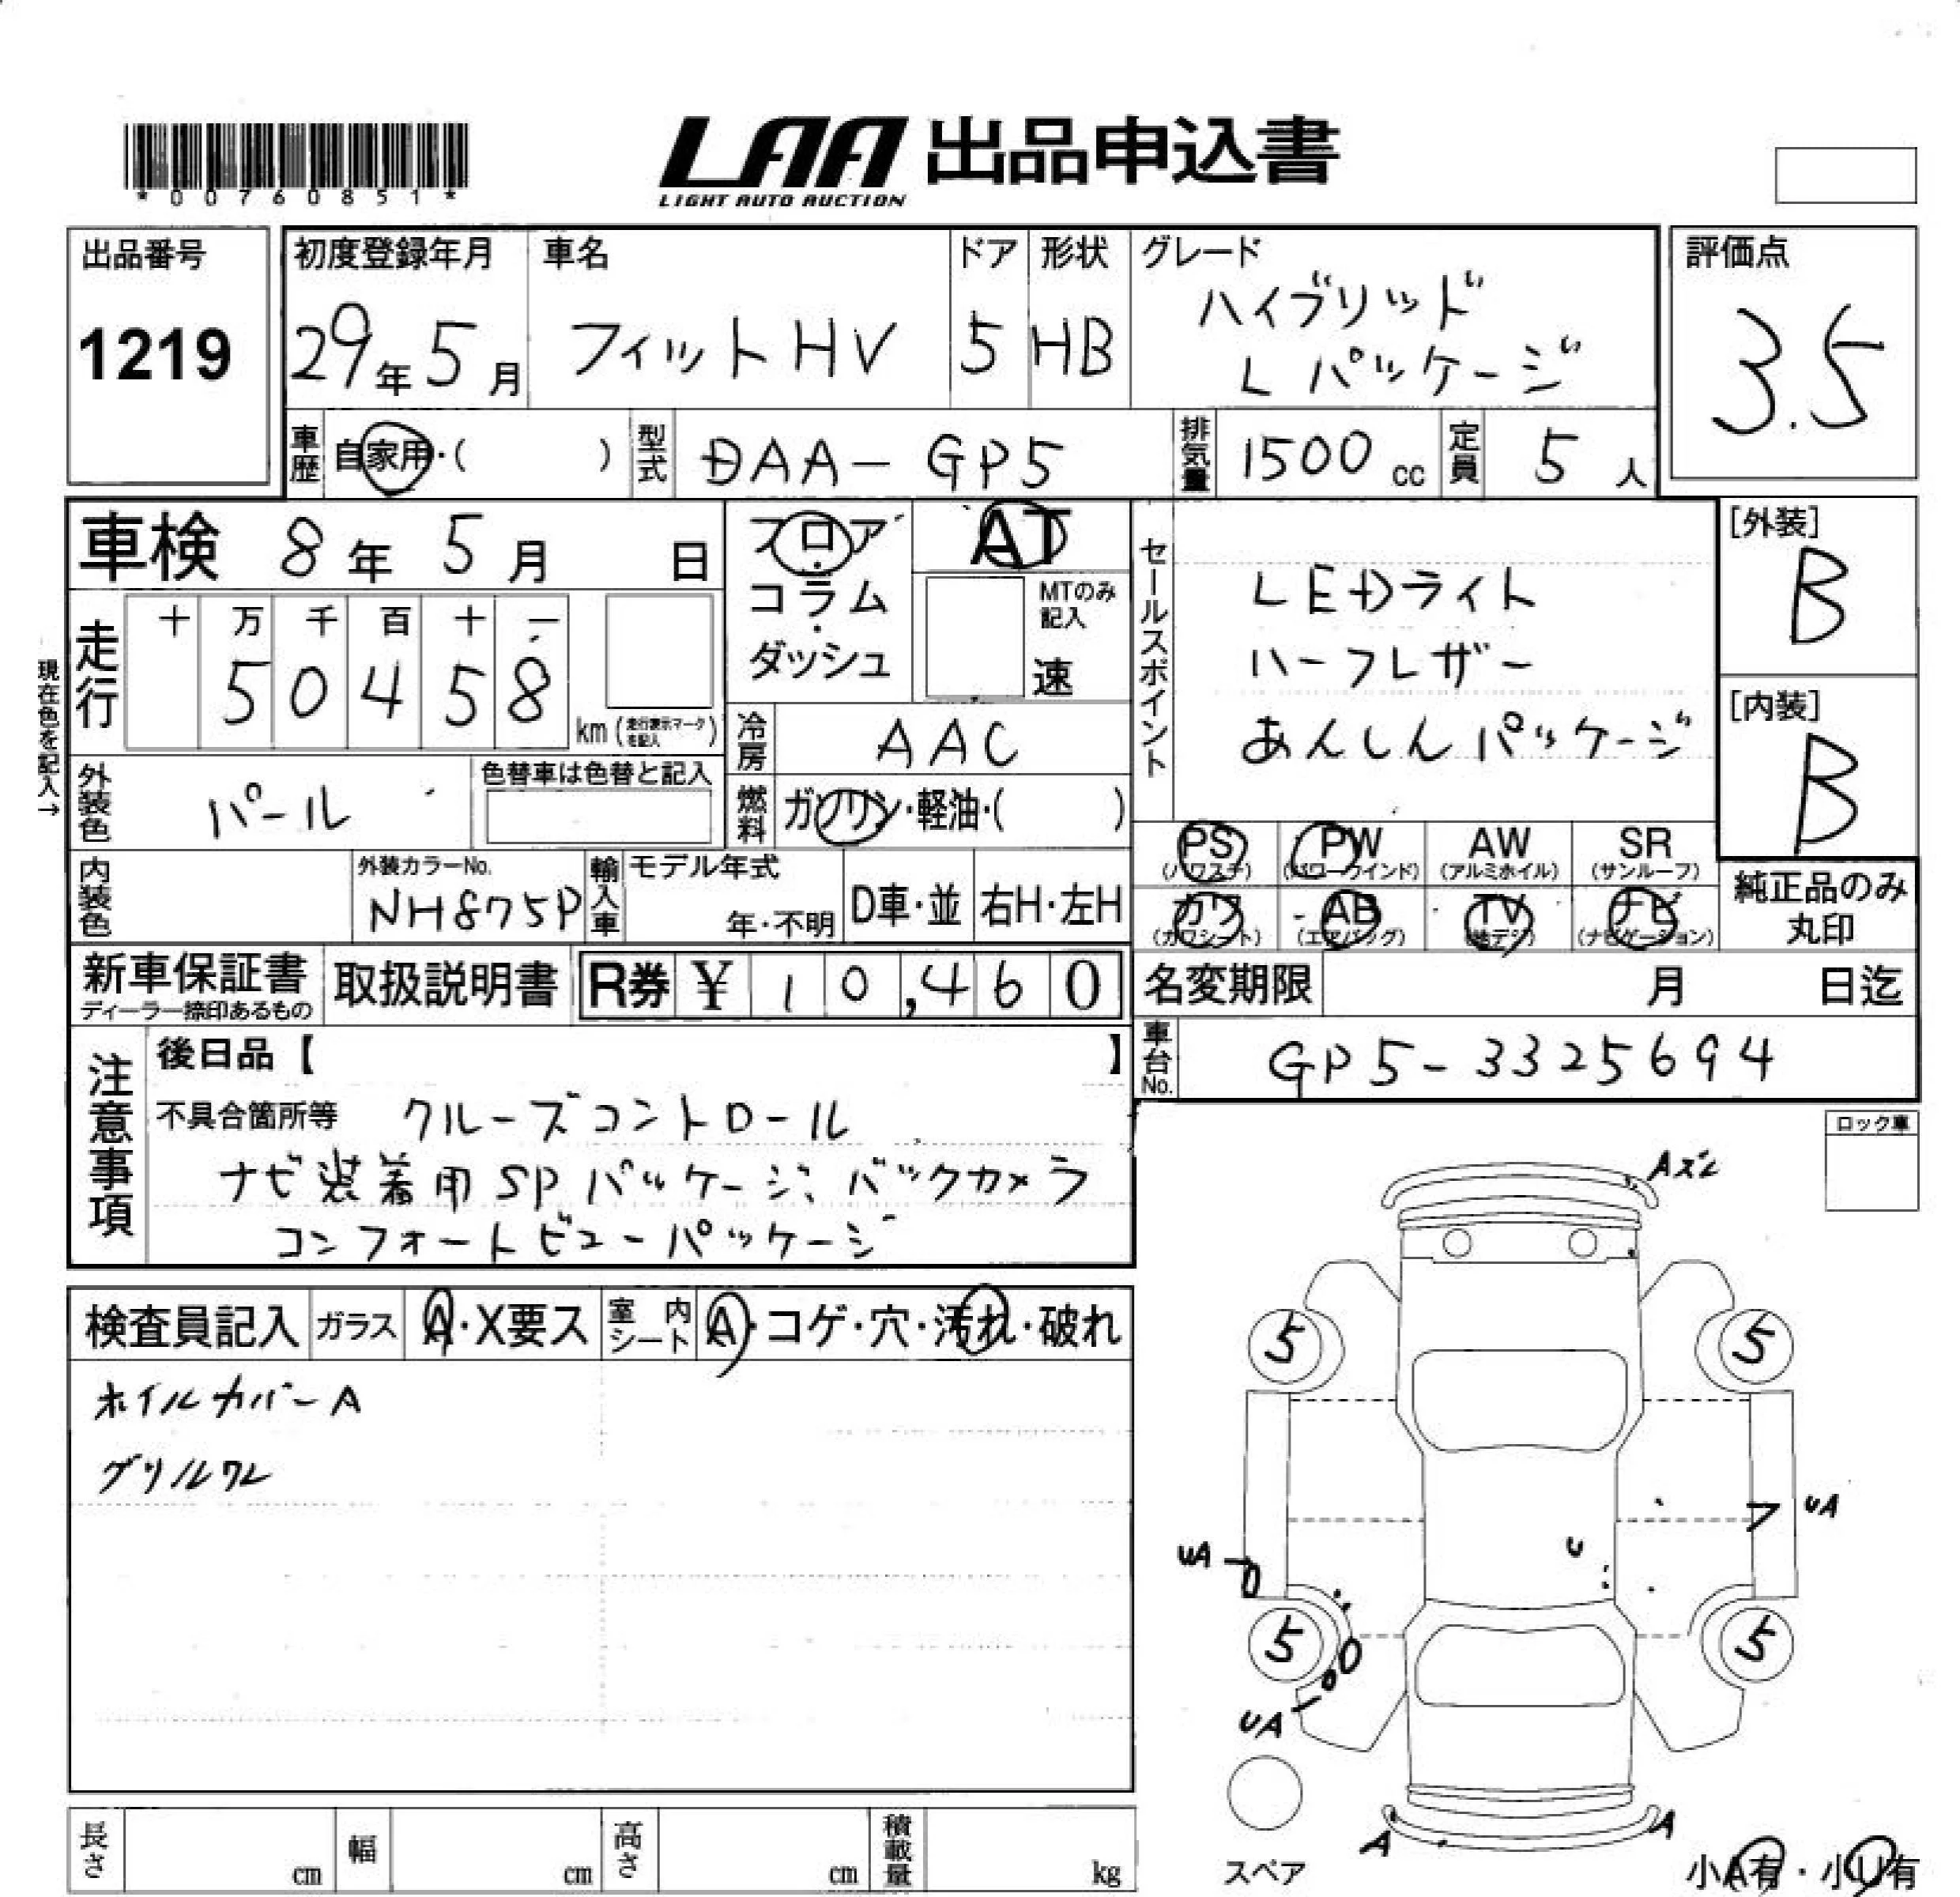 *00760851*
LAA 出品申込書
LIGHT AUTO AUCTION
出品番号
1219
初度登録年月
29年5月
車名
フィットHV
ドア
5
形状
HB
グレード
ハイブリッド
Lパッケージ
評価点
3.5
車歴
自家用・( )
型式
DAA-GP5
排気量
1500 cc
定員
5人
車検 8年 5月 日
フロア・
コラム
・
ダッシュ
AT
MTのみ
記入
速
セールスポイント
LEDライト
ハーフレザー
あんしんパッケージ
[外装]
B
[内装]
B
現在色を記入→
走行
十 万 千 百 十 一
5 0 4 5 8
km (走行表示マークを記入)
冷房
AAC
外装色
パール
色替車は色替と記入
燃料
ガソリン・軽油・( )
PS
(パワステ)
PW
(パワーウインド)
AW
(アルミホイル)
SR
(サンルーフ)
カワ
(カワシート)
AB
(エアバッグ)
TV
(地デジ)
ナビ
(ナビゲーション)
純正品のみ
丸印
内装色
外装カラーNo.
NH875P
輸入車
モデル年式
年・不明
D車・並
右H・左H
新車保証書
ディーラー捺印あるもの
取扱説明書
R券 ¥ 10,460
名変期限 月 日迄
車台No.
GP5-3325694
注意事項
後日品【 】
不具合箇所等 クルーズコントロール
ナビ装着用SPパッケージ、バックカメラ
コンフォートビューパッケージ
ロック車
検査員記入
ガラス
A・X要ス
室内シート
A・コゲ・穴・汚れ・破れ
ホイルカバーA
グリルワレ
Aズレ
5
5
UA
UA
U
5
5
UA
A
A
スペア
小A有・小U有
長さ cm
幅 cm
高さ cm
積載量 kg